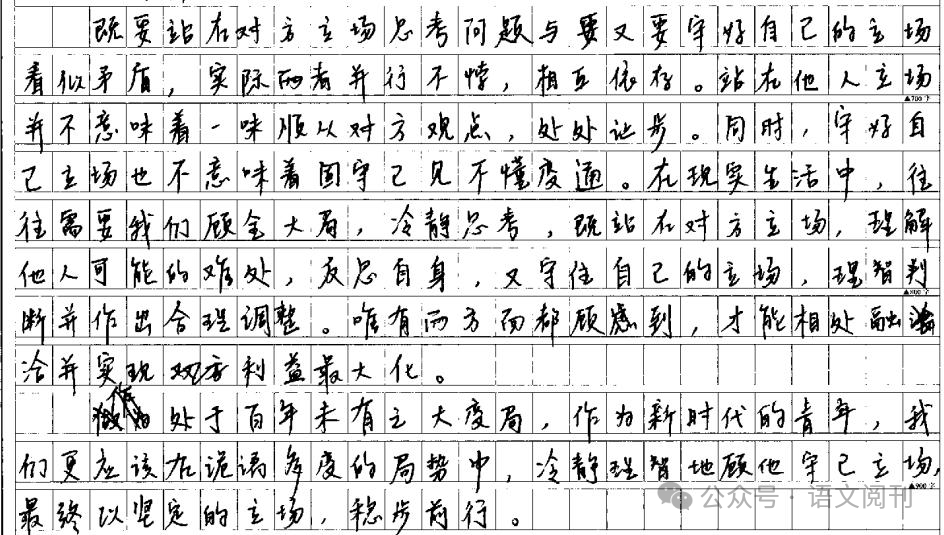 既要站在对方立场思考问题与要又要守好自己的立场
看似矛盾，实际两者并行不悖，相互依存。站在他人立场
▲700字
并不意味着一味顺从对方观点，处处让步。同时，守好自
己立场也不意味着固守己见不懂变通。在现实生活中，往
往需要我们顾全大局，冷静思考，既站在对方立场，理解
他人可能的难处，反思自身，又守住自己的立场，理智判
▲800字
断并作出合理调整。唯有两方面都顾虑到，才能相处融
洽并实现双方利益最大化。
作为处于百年未有之大变局，作为新时代的青年，我
们更应该在诡谲多变的局势中，冷静理智地顾他守己立场，
▲900字
最终以坚定的立场，稳步前行。
公众号·语文阅刊